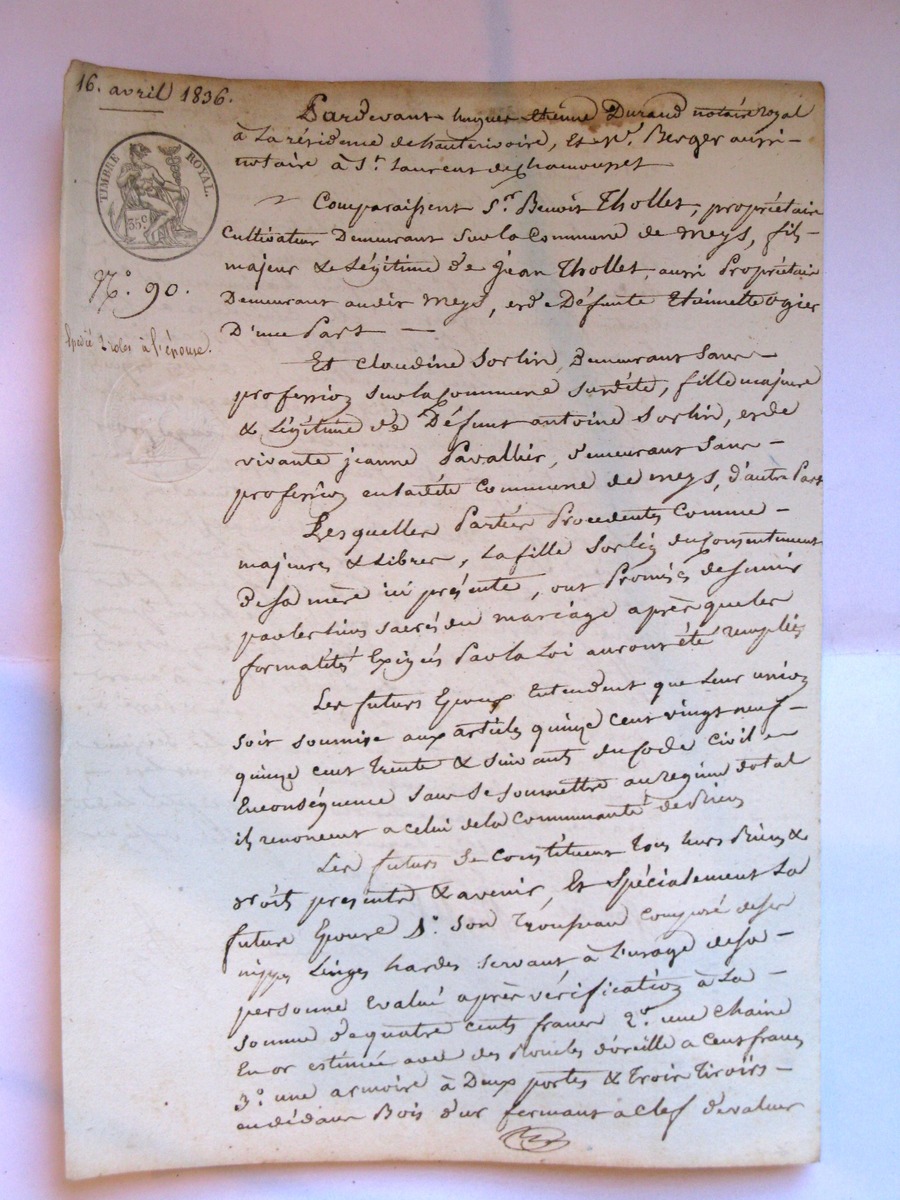 16. avril 1836.
Pardevant hugues étienne Durand notaire royal
à La résidence de hauterivoire, Et Me. Berger aussi
notaire à St. Laurent de Chamousset
TIMBRE ROYAL.
35c.
Comparaissent Sr. Benoit Thollet, propriétaire
Cultivateur Demeurant sur la Commune de meys, fils
majeur & Légitime de jean Thollet aussi Propriétaire
Demeurant au dit meys, et de Défunte Etiennette ogier
D'une Part —
No. 90.
Expédié 2 roles à l'épouse.
Et Claudine Sorlin, Demeurant Sans
profession sur la Commune susdite, fille majeure
& Légitime de Défunt antoine Sorlin, et de
vivante jeanne Pavallier, demeurant sans
profession en ladite Commune de meys, d'autre Part
Lesquelles Parties Procedentes Comme
majeures & Libres, La fille Sorlin du Consentement
de sa mère ici présente, ont Promis de s'unir
par les liens sacrés du mariage après que les
formalités Exigées Par la Loi auront été remplies
Les futurs Epoux Entendent que Leur union
soit soumise aux articles quinze cent vingt neuf
quinze cent Trente & suivants du Code Civil en
Enconséquence sans se soumettre au regime dotal
ils renoncent a celui de la Communauté de Biens
Les futurs se Constituent Tous leurs Biens &
droits presents & avenir, Et Spécialement La
future Epouse 1o. son Trousseau composé de ses
nippes Linges hardes servant à L'usage de sa
personne Evalué après vérification à La
somme de quatre cents francs 2o. une Chaine
En or estimée avec des Boucles d'oreille a Cent francs
3o. une armoire à Deux portes & trois Tiroirs
au dédans Bois dur fermant a clef d'evaluer